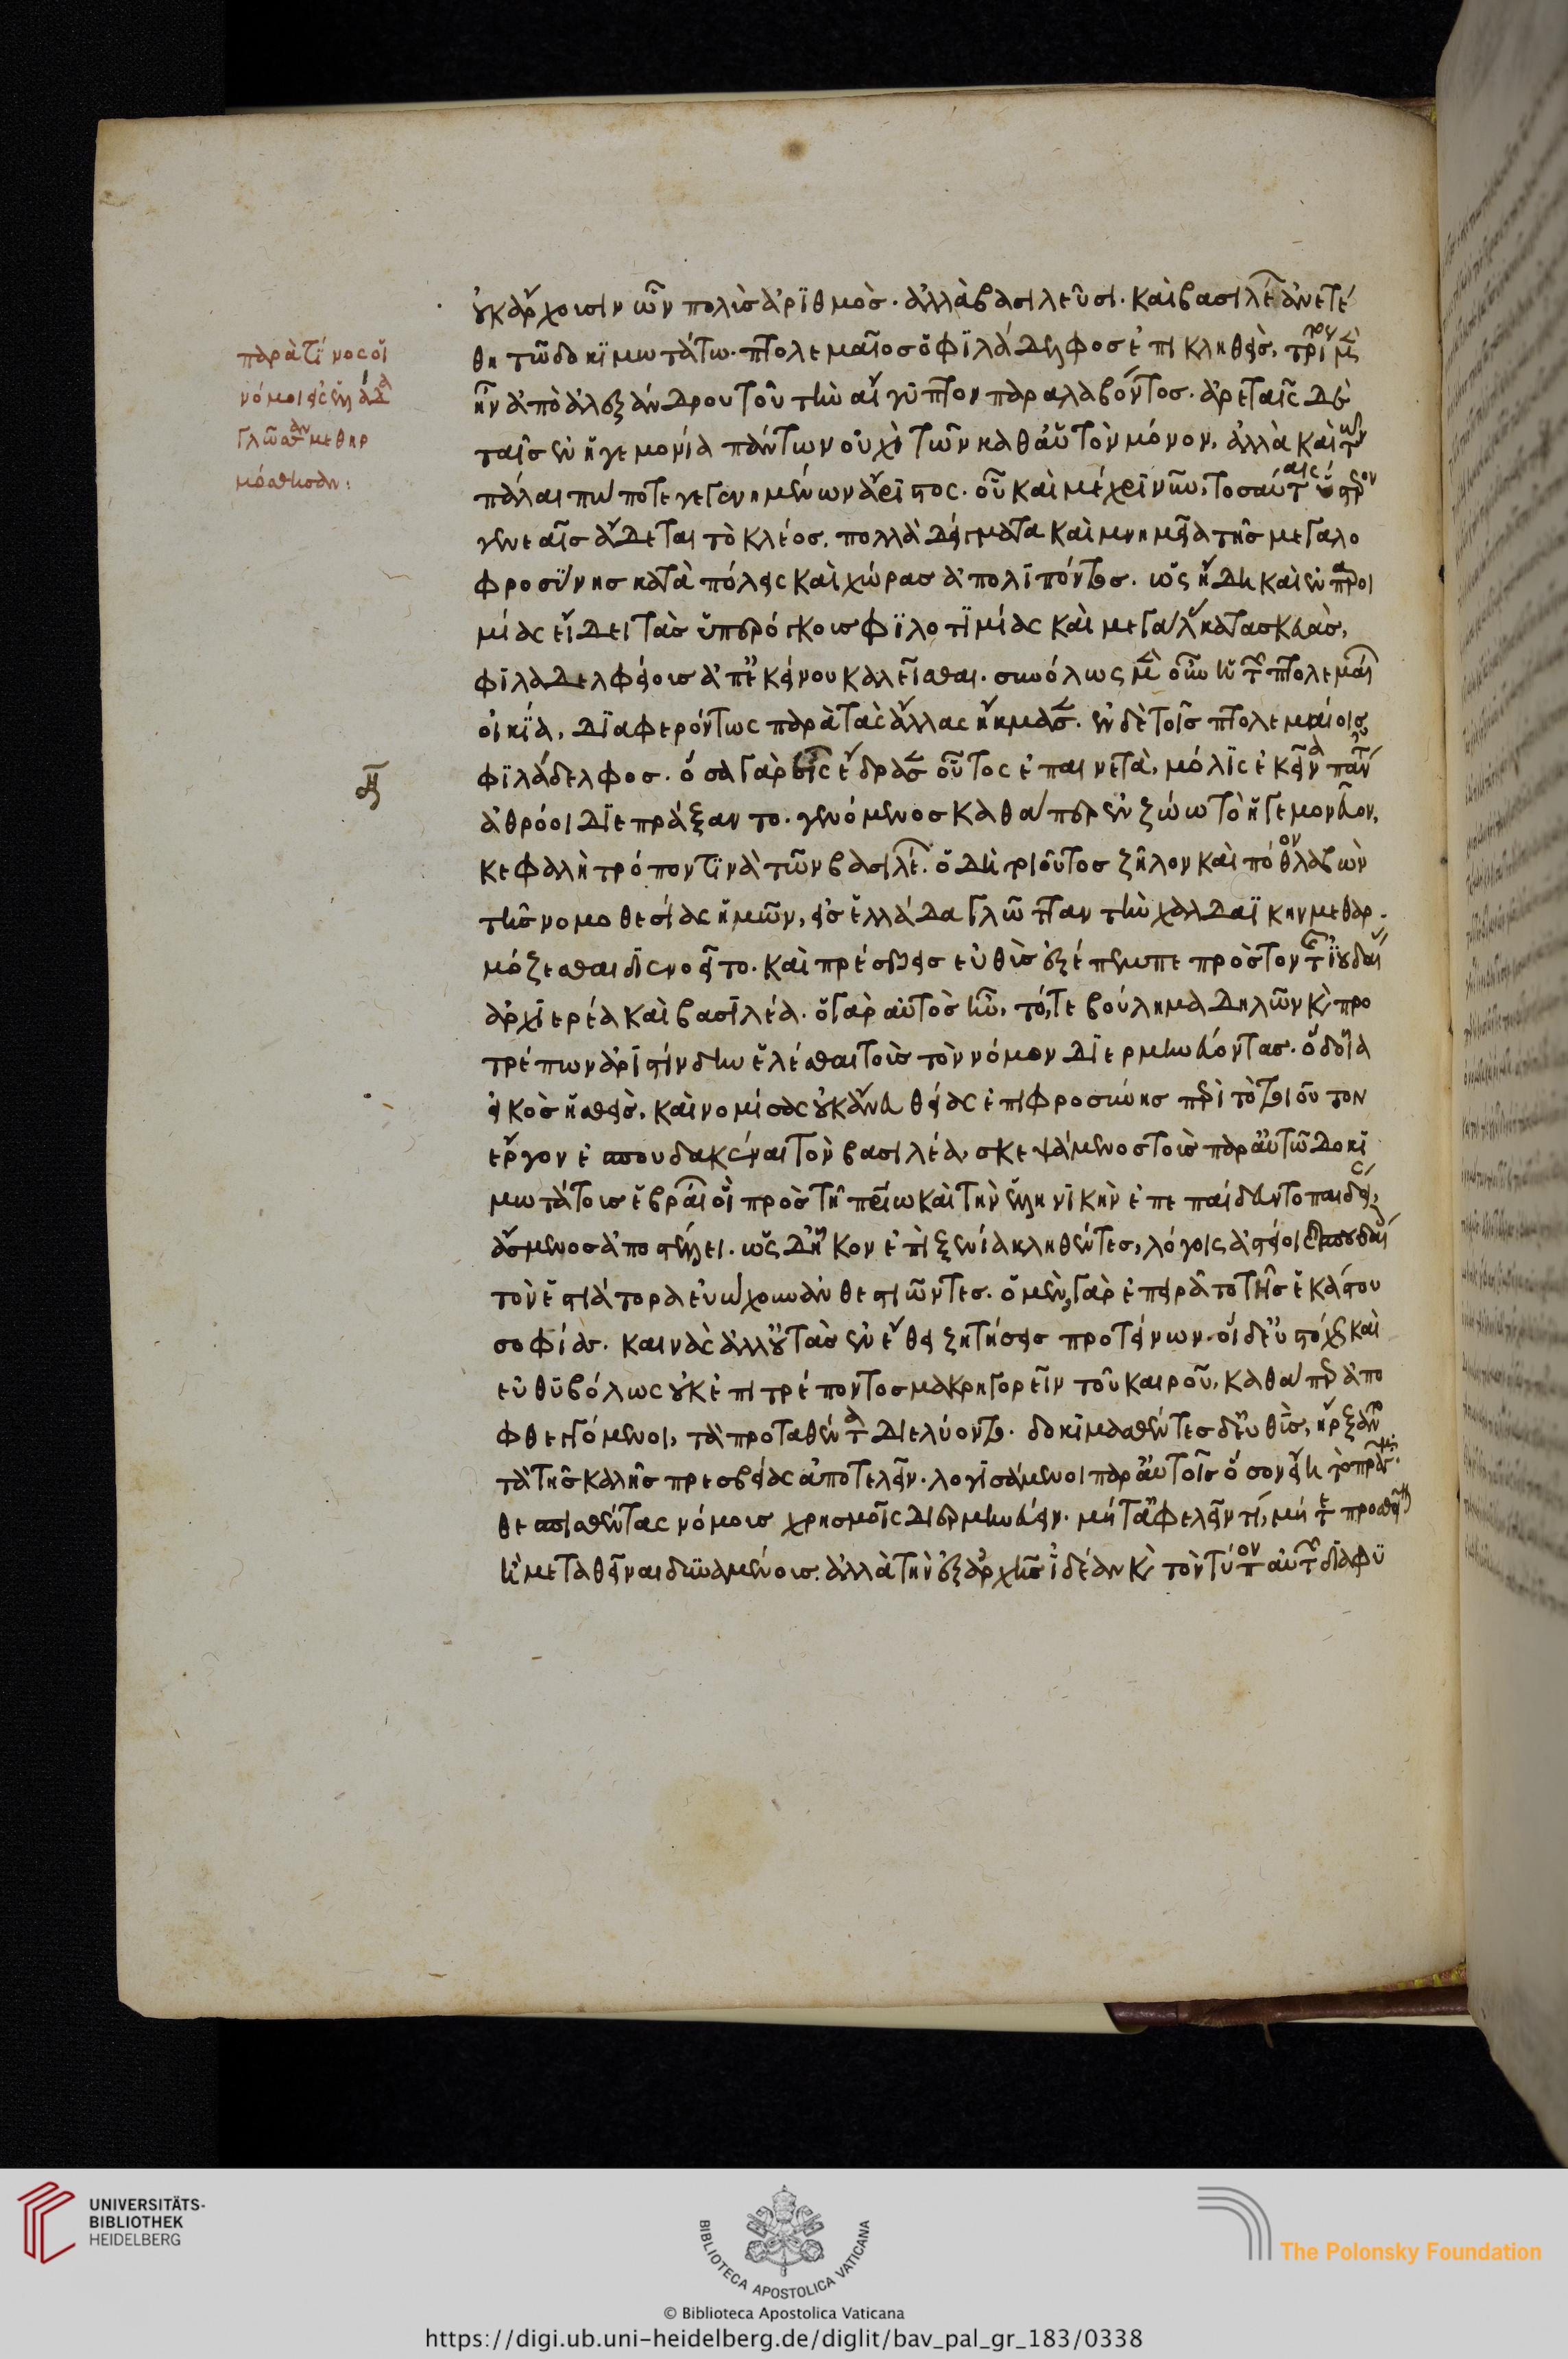 οὐκ ἄρχουσιν ὧν πολὺς ἀριθμὸς· ἀλλὰ βασιλεῦσι· καὶ βασιλέων ἀνετέ
θη τῶ δοκιμωτάτω· πτολεμαῖος ὁ φιλάδελφος ἐπικληθεὶς, τρίτος μὲν
ἦν ἀπὸ ἀλεξάνδρου τοῦ τὴν αἴγυπτον παραλαβόντος· ἀρεταῖς δὲ
ταῖς ἐν ἡγεμονία πάντων οὐχὶ τῶν καθ' αὑτὸν μόνον, ἀλλὰ καὶ τῶν
πάλαι πώποτε γεγενημένων ἄριστος· οὗ καὶ μέχρι νῦν, τοσαύταις ὕστερον
γενεαῖς ἄδεται τὸ κλέος. πολλὰ δείγματα καὶ μνημεῖα τῆς μεγαλο
φροσύνης κατὰ πόλεις καὶ χώρας ἀπολιπόντος. ὡς ἤδη καὶ ἐν παροι
μίας εἴδει τὰς ὑπερόγκους φιλοτιμίας καὶ μεγάλας κατασκευὰς,
φιλαδελφείους ἀπ' ἐκείνου καλεῖσθαι. συνόλως μὲν οὖν ἡ τῶν πτολεμαίων
οἰκία, διαφερόντως παρὰ τὰς ἄλλας ἤκμασεν. ἐν δὲ τοῖς πτολεμαίοις ὁ
φιλάδελφος. ὅσα γὰρ εἷς ἔδρασεν οὗτος ἐπαινετὰ, μόλις ἐκεῖνα πάντες
ἀθρόοι διεπράξαντο. γενόμενος καθάπερ ἐν ζώω τὸ ἡγεμονεῦον,
κεφαλὴ τρόπον τινὰ τῶν βασιλέων. ὁ δὴ τοιοῦτος ζῆλον καὶ πόθον λαβὼν
τῆς νομοθεσίας ἡμῶν, εἰς ἑλλάδα γλῶτταν τὴν χαλδαϊκὴν μεθαρ
μόζεσθαι διενοεῖτο. καὶ πρέσβεις εὐθὺς ἐξέπεμπε πρὸς τὸν τῆς ἰουδαίας
ἀρχιερέα καὶ βασιλέα. ὁ γὰρ αὐτὸς ἦν, τό,τε βούλημα δηλῶν καὶ προ
τρέπων ἀριστίνδην ἑλέσθαι τοὺς τὸν νόμον διερμηνεύοντας. ὁ δ' οἷα
εἰκὸς ἡσθεὶς, καὶ νομίσας οὐκ ἄνευ θείας ἐπιφροσύνης περὶ τὸ τοιοῦτον
ἔργον ἐσπουδακέναι τὸν βασιλέα, σκεψάμενος τοὺς παρ' αὐτῶ δοκι
μωτάτους ἑβραίων οἳ πρὸς τῆ πατρίω καὶ τὴν ἑλληνικὴν ἐπεπαίδευντο παιδείαν,
ἄσμενος ἀποστέλλει. ὡς δ' ἧκον ἐπὶ ξενία κληθέντες, λόγοις ἀστείοις καὶ σπουδαίοις
τὸν ἑστιάτορα εὐώχουν ἀνθεστιῶντες. ὁ μὲν, γὰρ ἐπειρᾶτο τῆς ἑκάστου
σοφίας. καινὰς ἀλλ' οὐ τὰς ἐν ἔθει ζητήσεις προτείνων. οἱ δ' εὐστόχως καὶ
εὐθυβόλως οὐκ ἐπιτρέποντος μακρηγορεῖν τοῦ καιροῦ, καθάπερ ἀπο
φθεγγόμενοι, τὰ προταθέντα διελύοντο. δοκιμασθέντες δ' εὐθὺς, ἤρξαντο
τὰ τῆς καλῆς πρεσβείας ἀποτελεῖν. λογισάμενοι παρ' αὑτοῖς ὅσον εἴη τὸ πρᾶγμα
θεσπισθέντας νόμους χρησμοῖς διερμηνεύειν. μήτ' ἀφελεῖν τί, μήτε προσθεῖναι
ἢ μεταθεῖναι δυναμένους. ἀλλὰ τὴν ἐξαρχῆς ἰδέαν καὶ τὸν τύπον αὐτῶν διαφυ
παρὰ τίνος οἱ
νόμοι εἰς ἑλλάδα
γλῶσσαν μεθηρ
μόσθησαν:
UNIVERSITÄTS-
BIBLIOTHEK
HEIDELBERG
BIBLIOTECA APOSTOLICA VATICANA
The Polonsky Foundation
© Biblioteca Apostolica Vaticana
https://digi.ub.uni-heidelberg.de/diglit/bav_pal_gr_183/0338